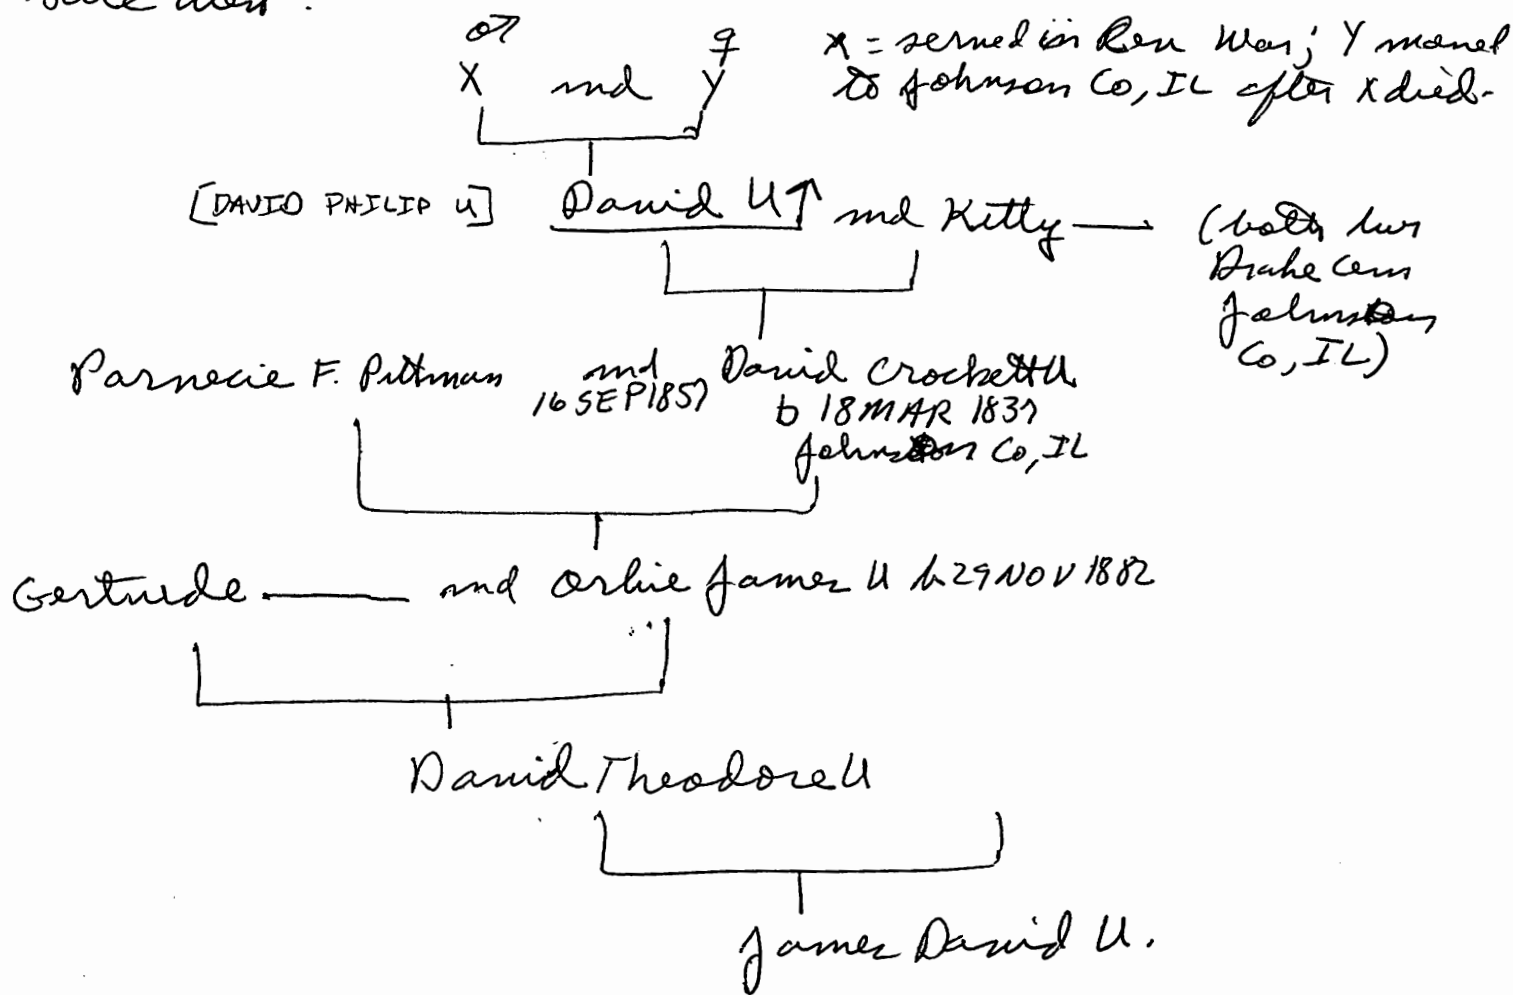 ♂ ♀
X md Y
X = served in Rev War; Y moved
to Johnson Co, IL after X died.
[DAVID PHILIP U] David U↑ md Kitty —— (both bur
Drake Cem
Johnson
Co, IL)
Parnecie F. Pittman md David Crockett U
16 SEP 1857 b 18 MAR 1837
Johnson Co, IL
Gertrude —— md Orlie James U b 29 NOV 1882
David Theodore U
James David U.